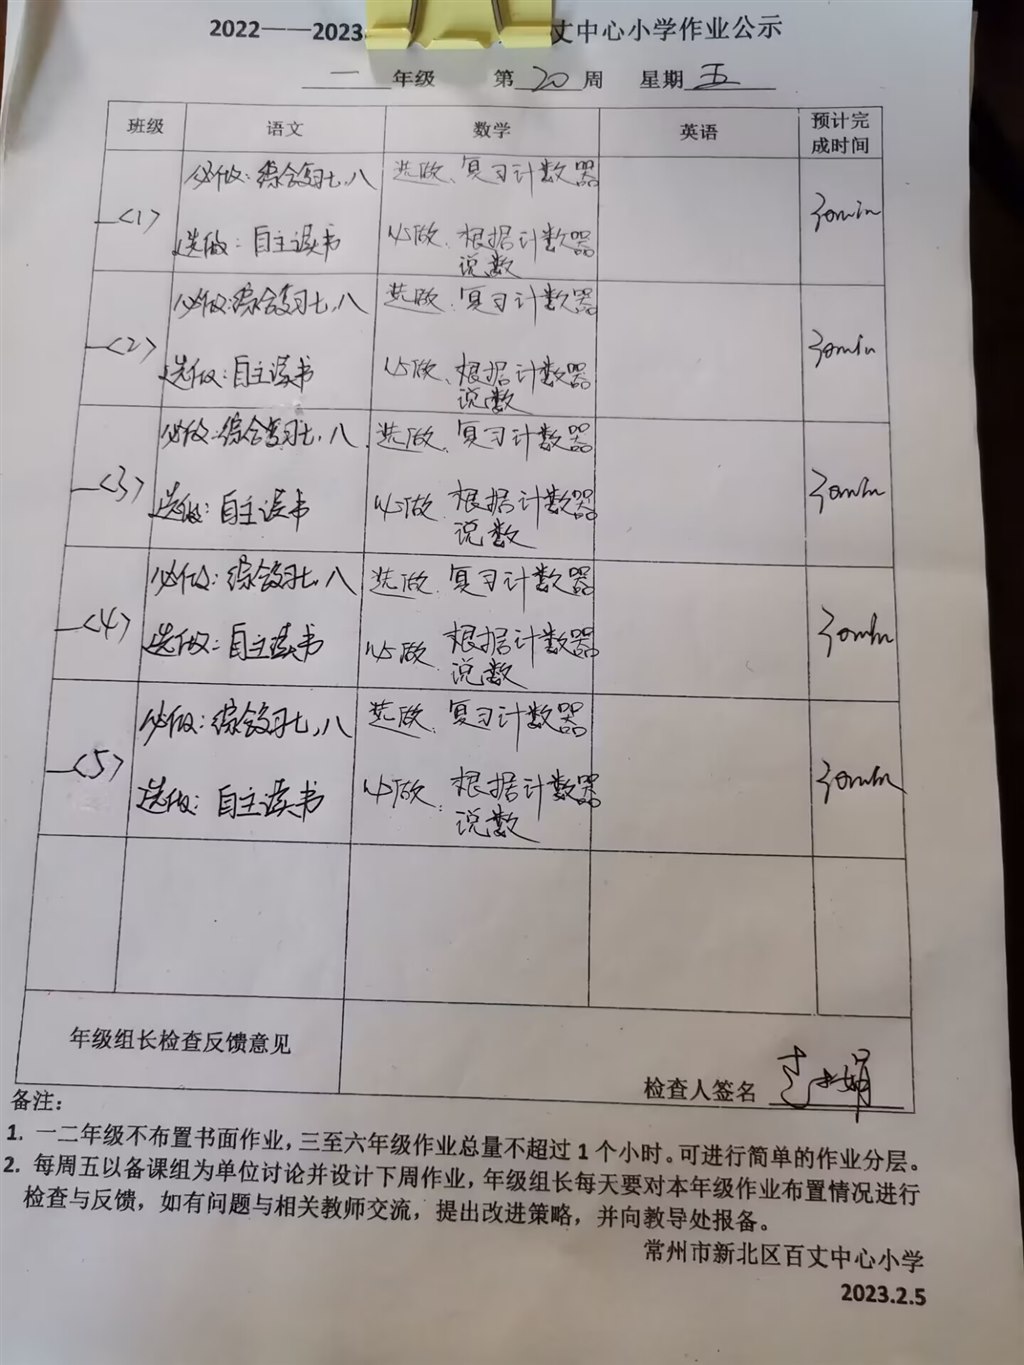 2022——2023 丈中心小学作业公示
一 年级 第 20 周 星期 五
班级 语文 数学 英语 预计完成时间
一<1> 必做：综合复习七、八 选做、复习计数器 30min
选做：自主读书 必做、根据计数器说数
一<2> 必做：综合复习七、八 选做、复习计数器 30min
选做：自主读书 必做、根据计数器说数
一<3> 必做：综合复习七、八 选做、复习计数器 30min
选做：自主读书 必做、根据计数器说数
一<4> 必做：综合复习七、八 选做、复习计数器 30min
选做：自主读书 必做、根据计数器说数
一<5> 必做：综合复习七、八 选做、复习计数器 30min
选做：自主读书 必做、根据计数器说数
年级组长检查反馈意见
检查人签名
备注：
1. 一二年级不布置书面作业，三至六年级作业总量不超过 1 个小时。可进行简单的作业分层。
2. 每周五以备课组为单位讨论并设计下周作业，年级组长每天要对本年级作业布置情况进行
检查与反馈，如有问题与相关教师交流，提出改进策略，并向教导处报备。
常州市新北区百丈中心小学
2023.2.5